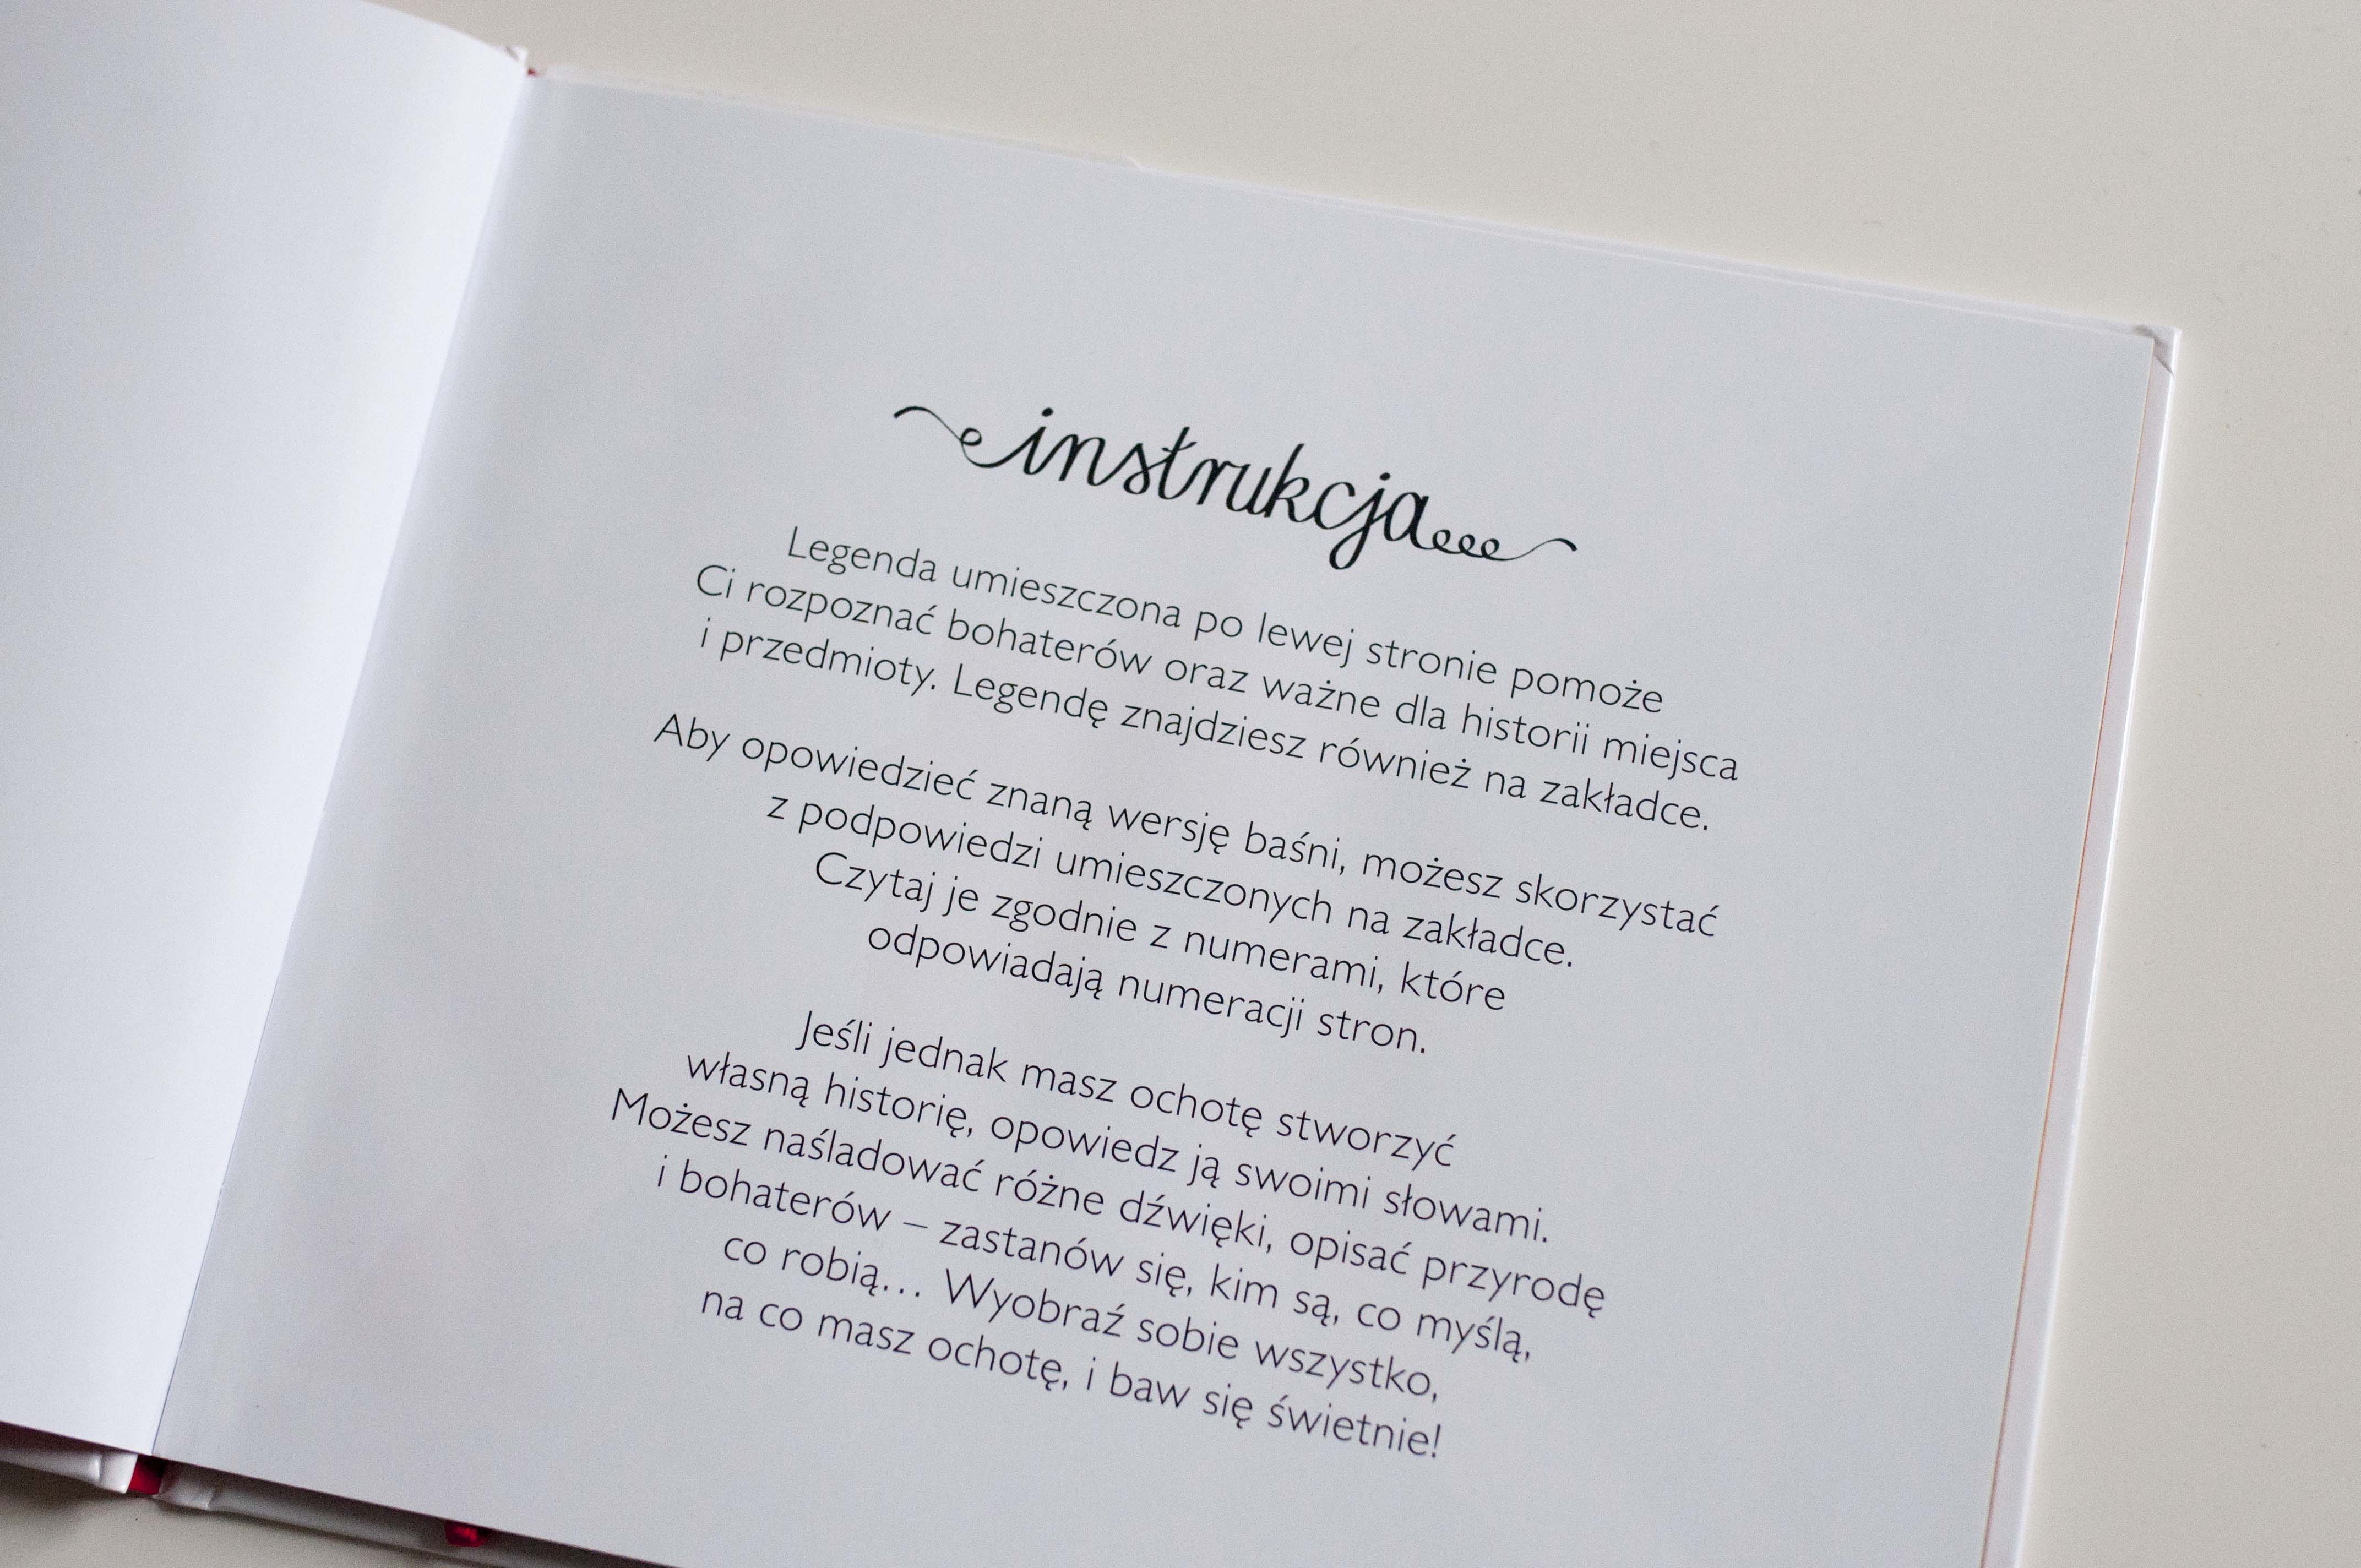 instrukcja
Legenda umieszczona po lewej stronie pomoże
Ci rozpoznać bohaterów oraz ważne dla historii miejsca
i przedmioty. Legendę znajdziesz również na zakładce.
Aby opowiedzieć znaną wersję baśni, możesz skorzystać
z podpowiedzi umieszczonych na zakładce.
Czytaj je zgodnie z numerami, które
odpowiadają numeracji stron.
Jeśli jednak masz ochotę stworzyć
własną historię, opowiedz ją swoimi słowami.
Możesz naśladować różne dźwięki, opisać przyrodę
i bohaterów – zastanów się, kim są, co myślą,
co robią... Wyobraź sobie wszystko,
na co masz ochotę, i baw się świetnie!